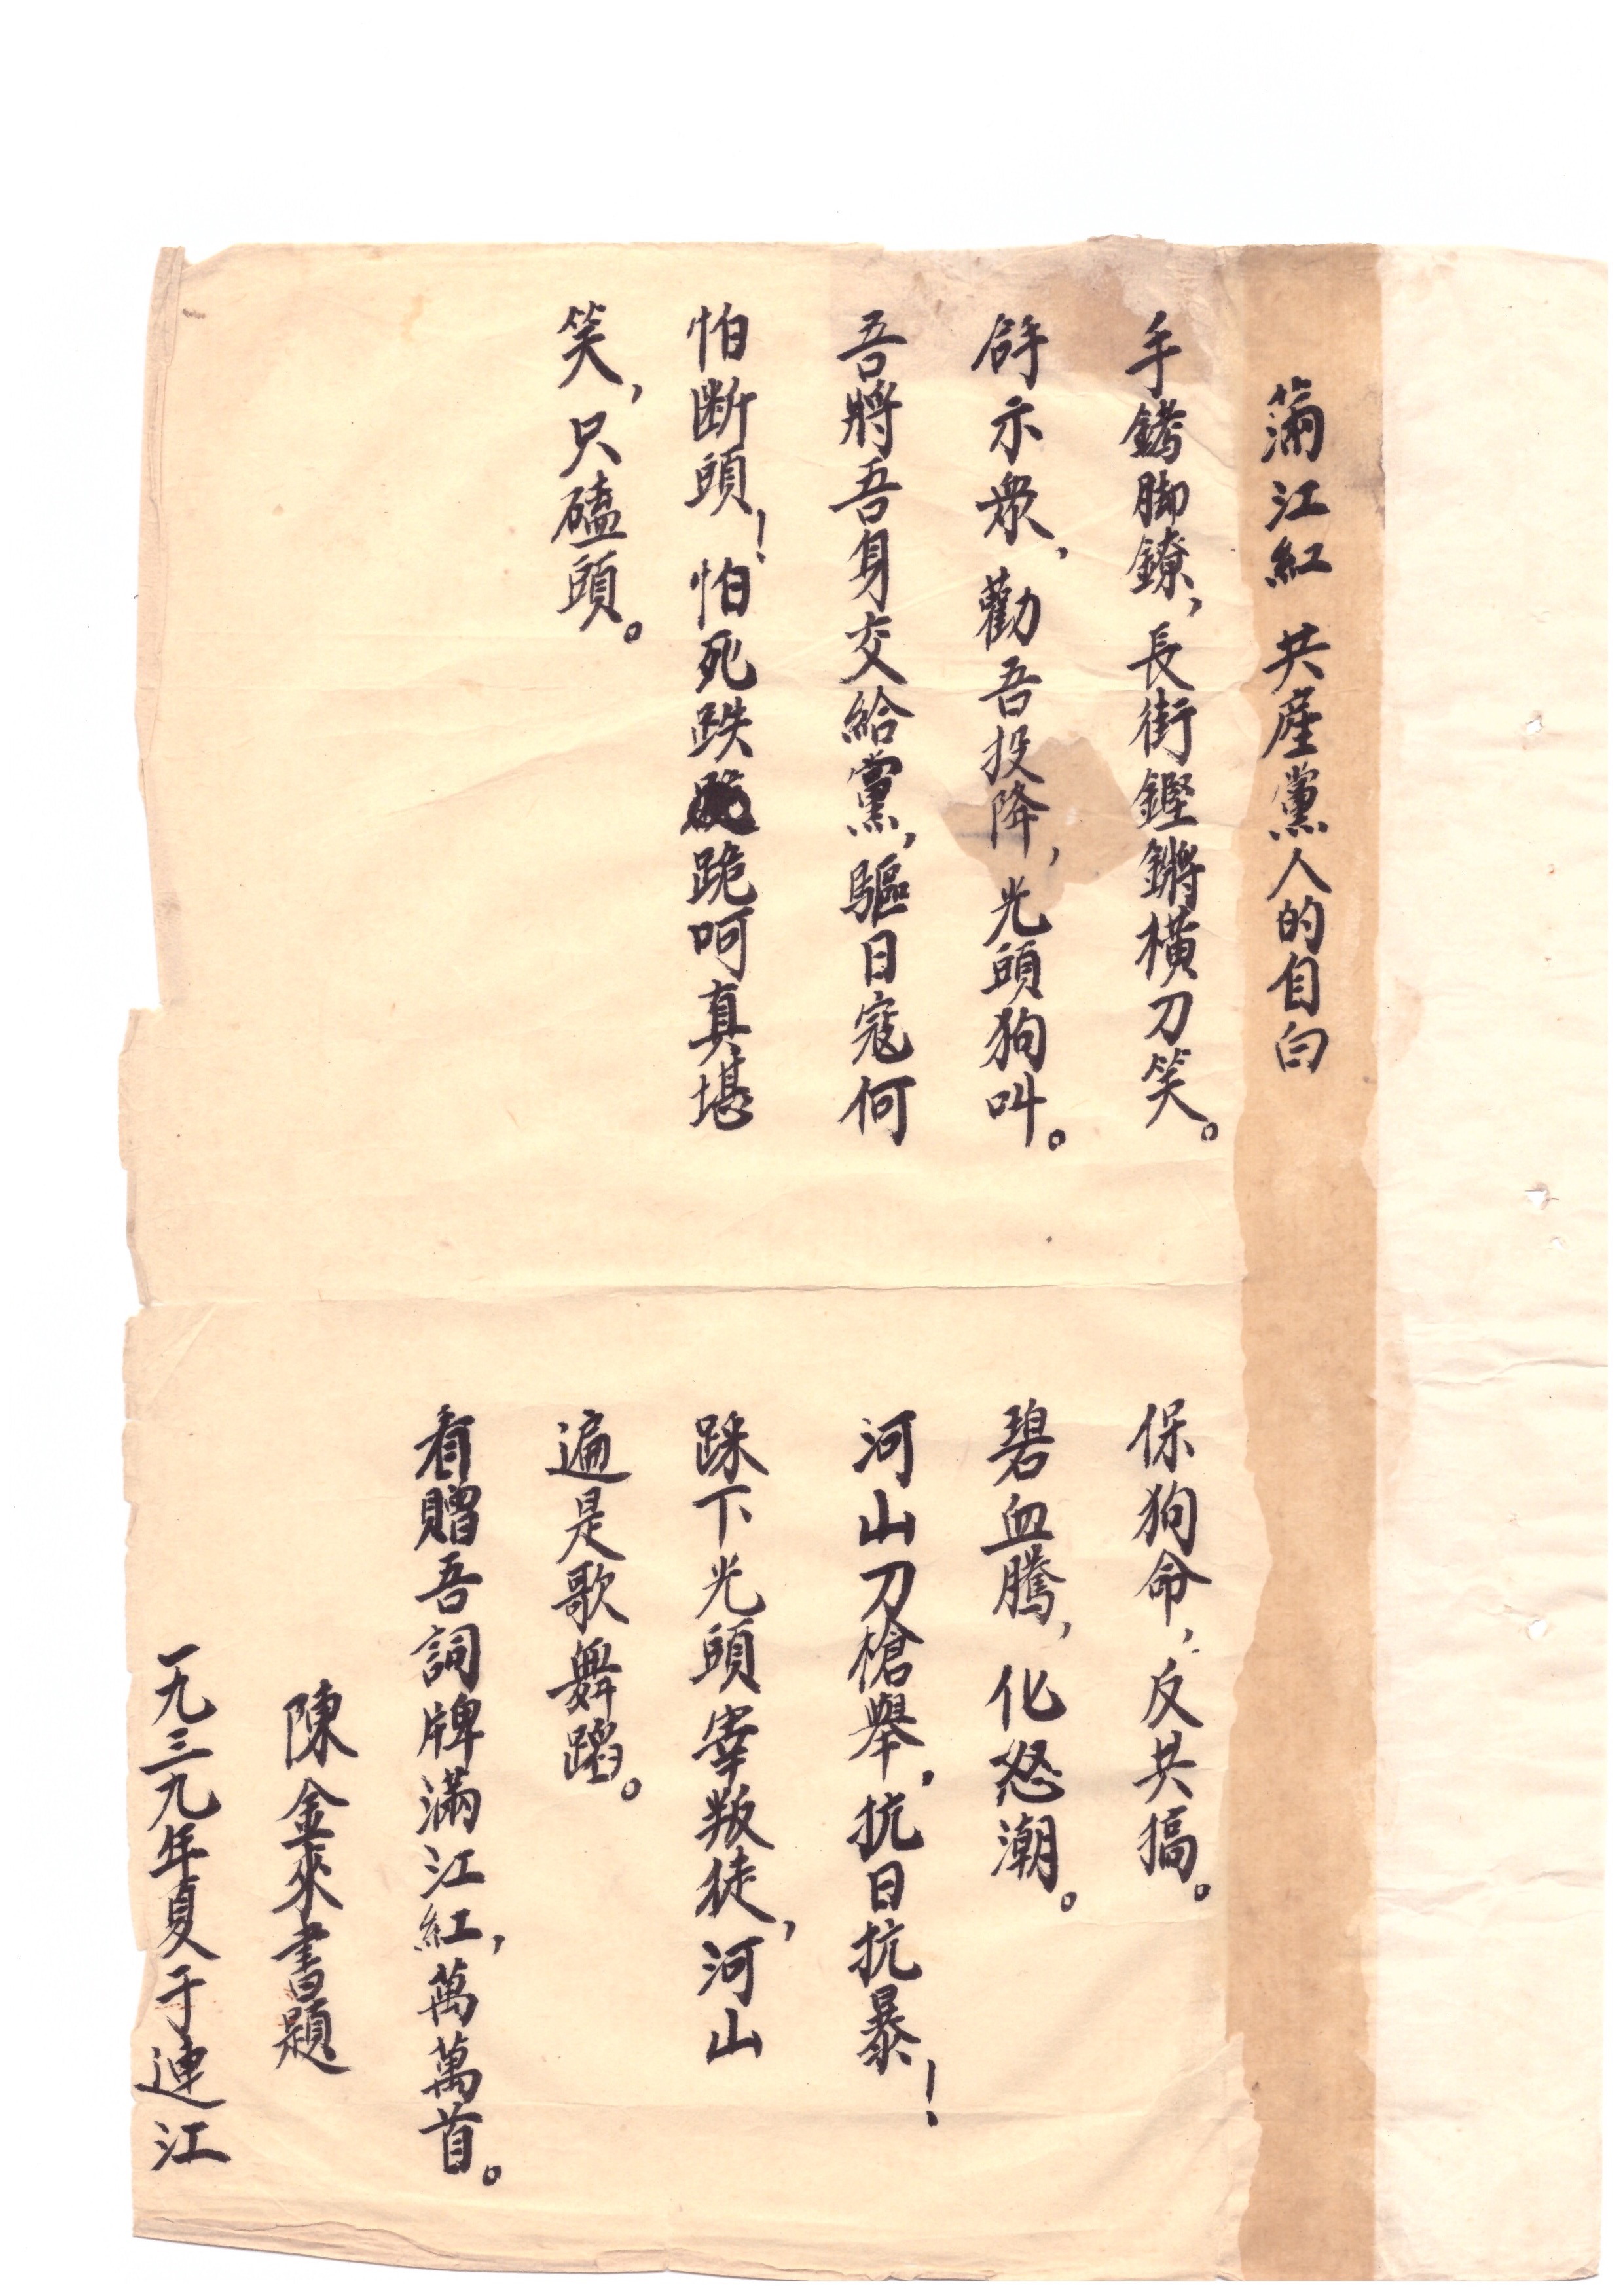 滿江紅 共產黨人的自白
手銬脚鐐，長街鏗鏘橫刀笑。
示衆，勸吾投降，光頭狗叫。
吾將吾身交給黨，驅日寇何
怕断頭！怕死跌跪呵真堪
笑，只磕頭。
保狗命，反共搞。
碧血騰，化怒潮。
河山刀槍舉，抗日抗暴！
踩下光頭宰叛徒，河山
遍是歌舞蹈。
看贈吾詞牌滿江紅，萬萬首。
陳金來書題
一九三九年夏于連江